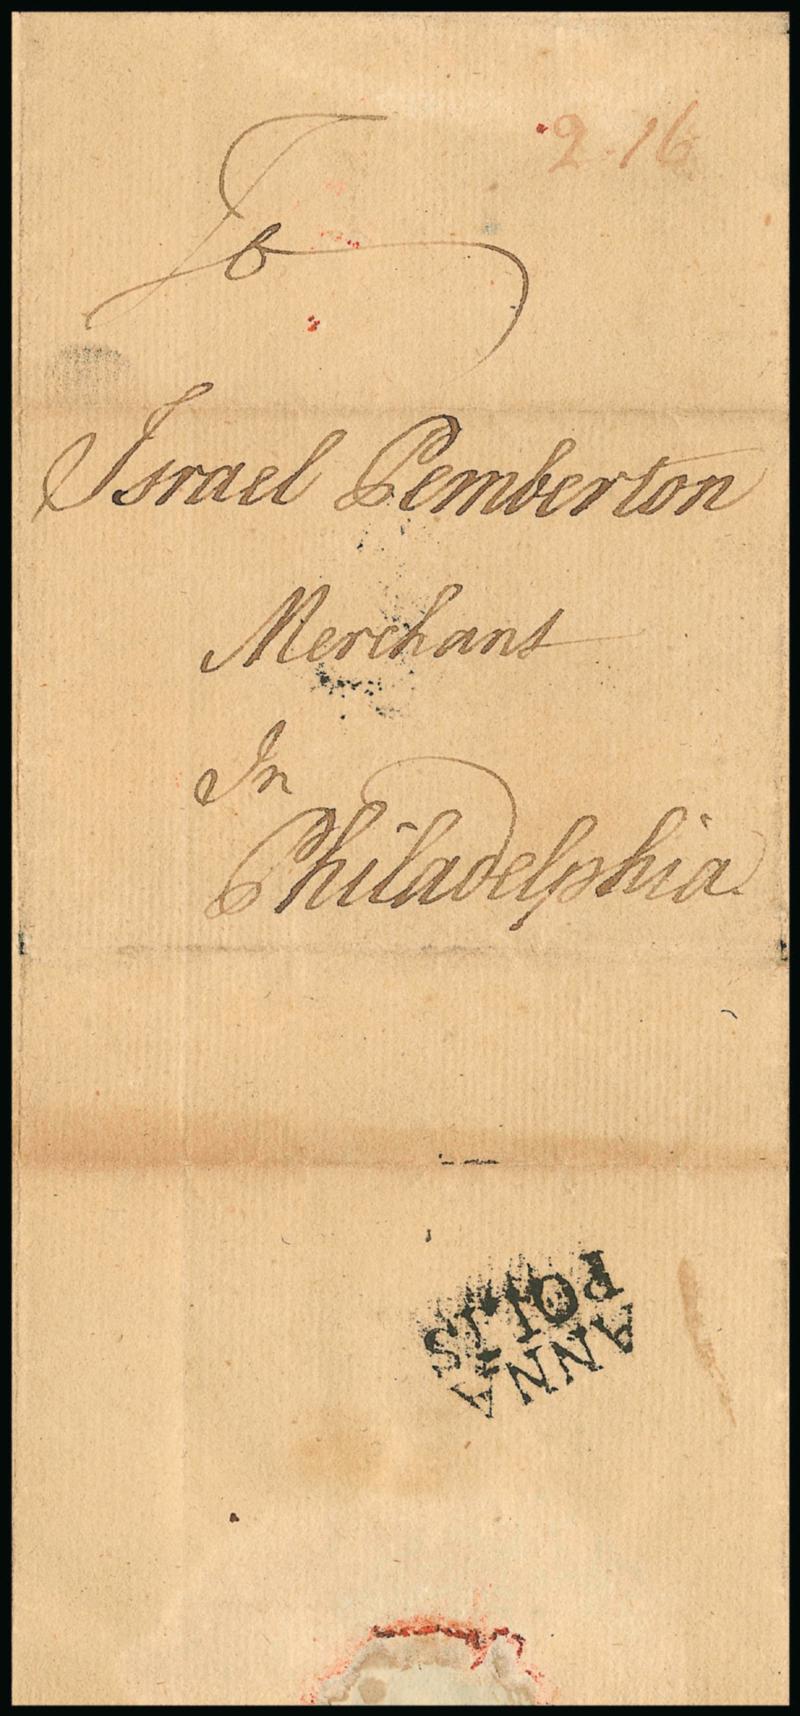 2.16
To
Israel Pemberton
Merchant
In
Philadelphia.
ANNA
POLIS